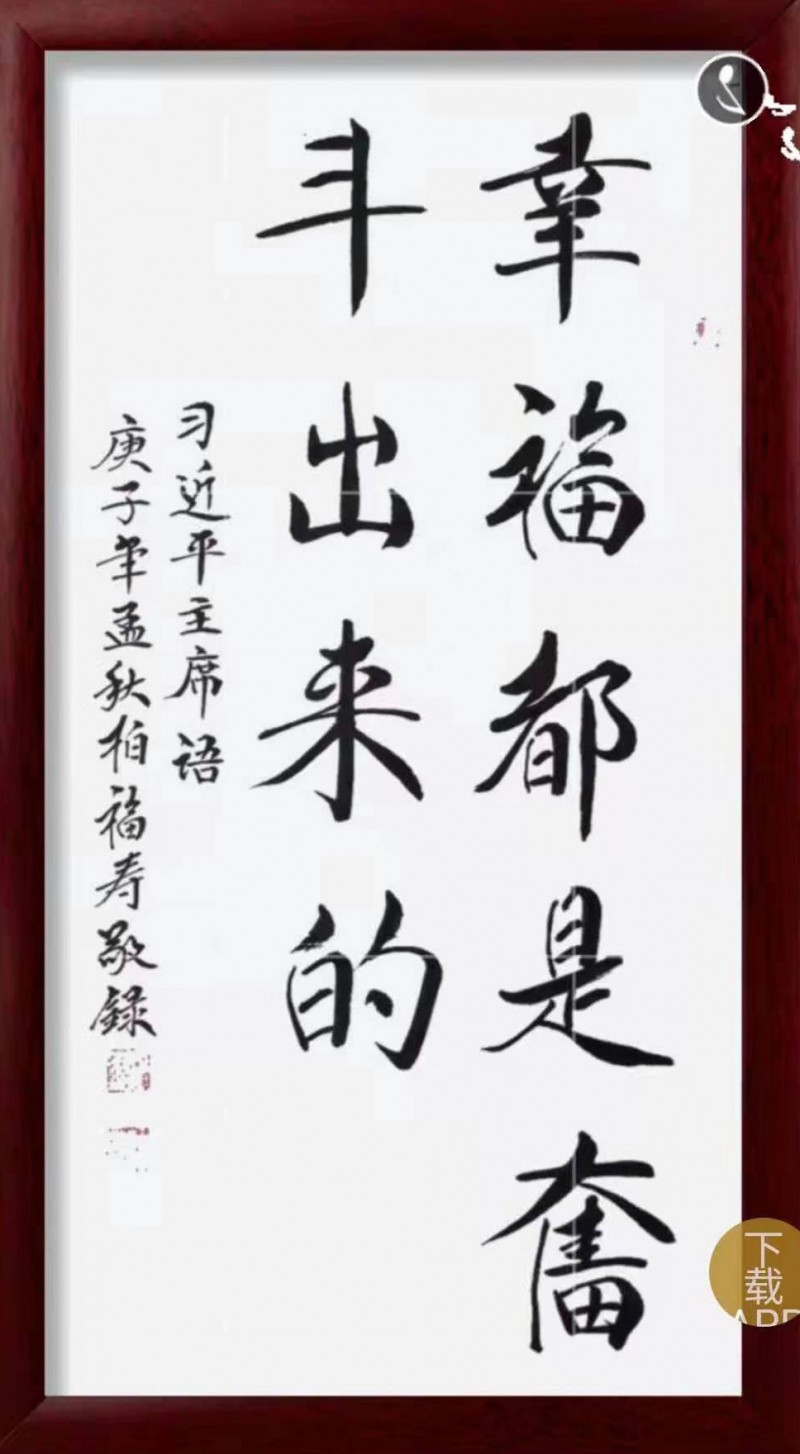 幸福都是奮
斗出来的
习近平主席语
庚子年孟秋柏福寿敬録
下载
APP